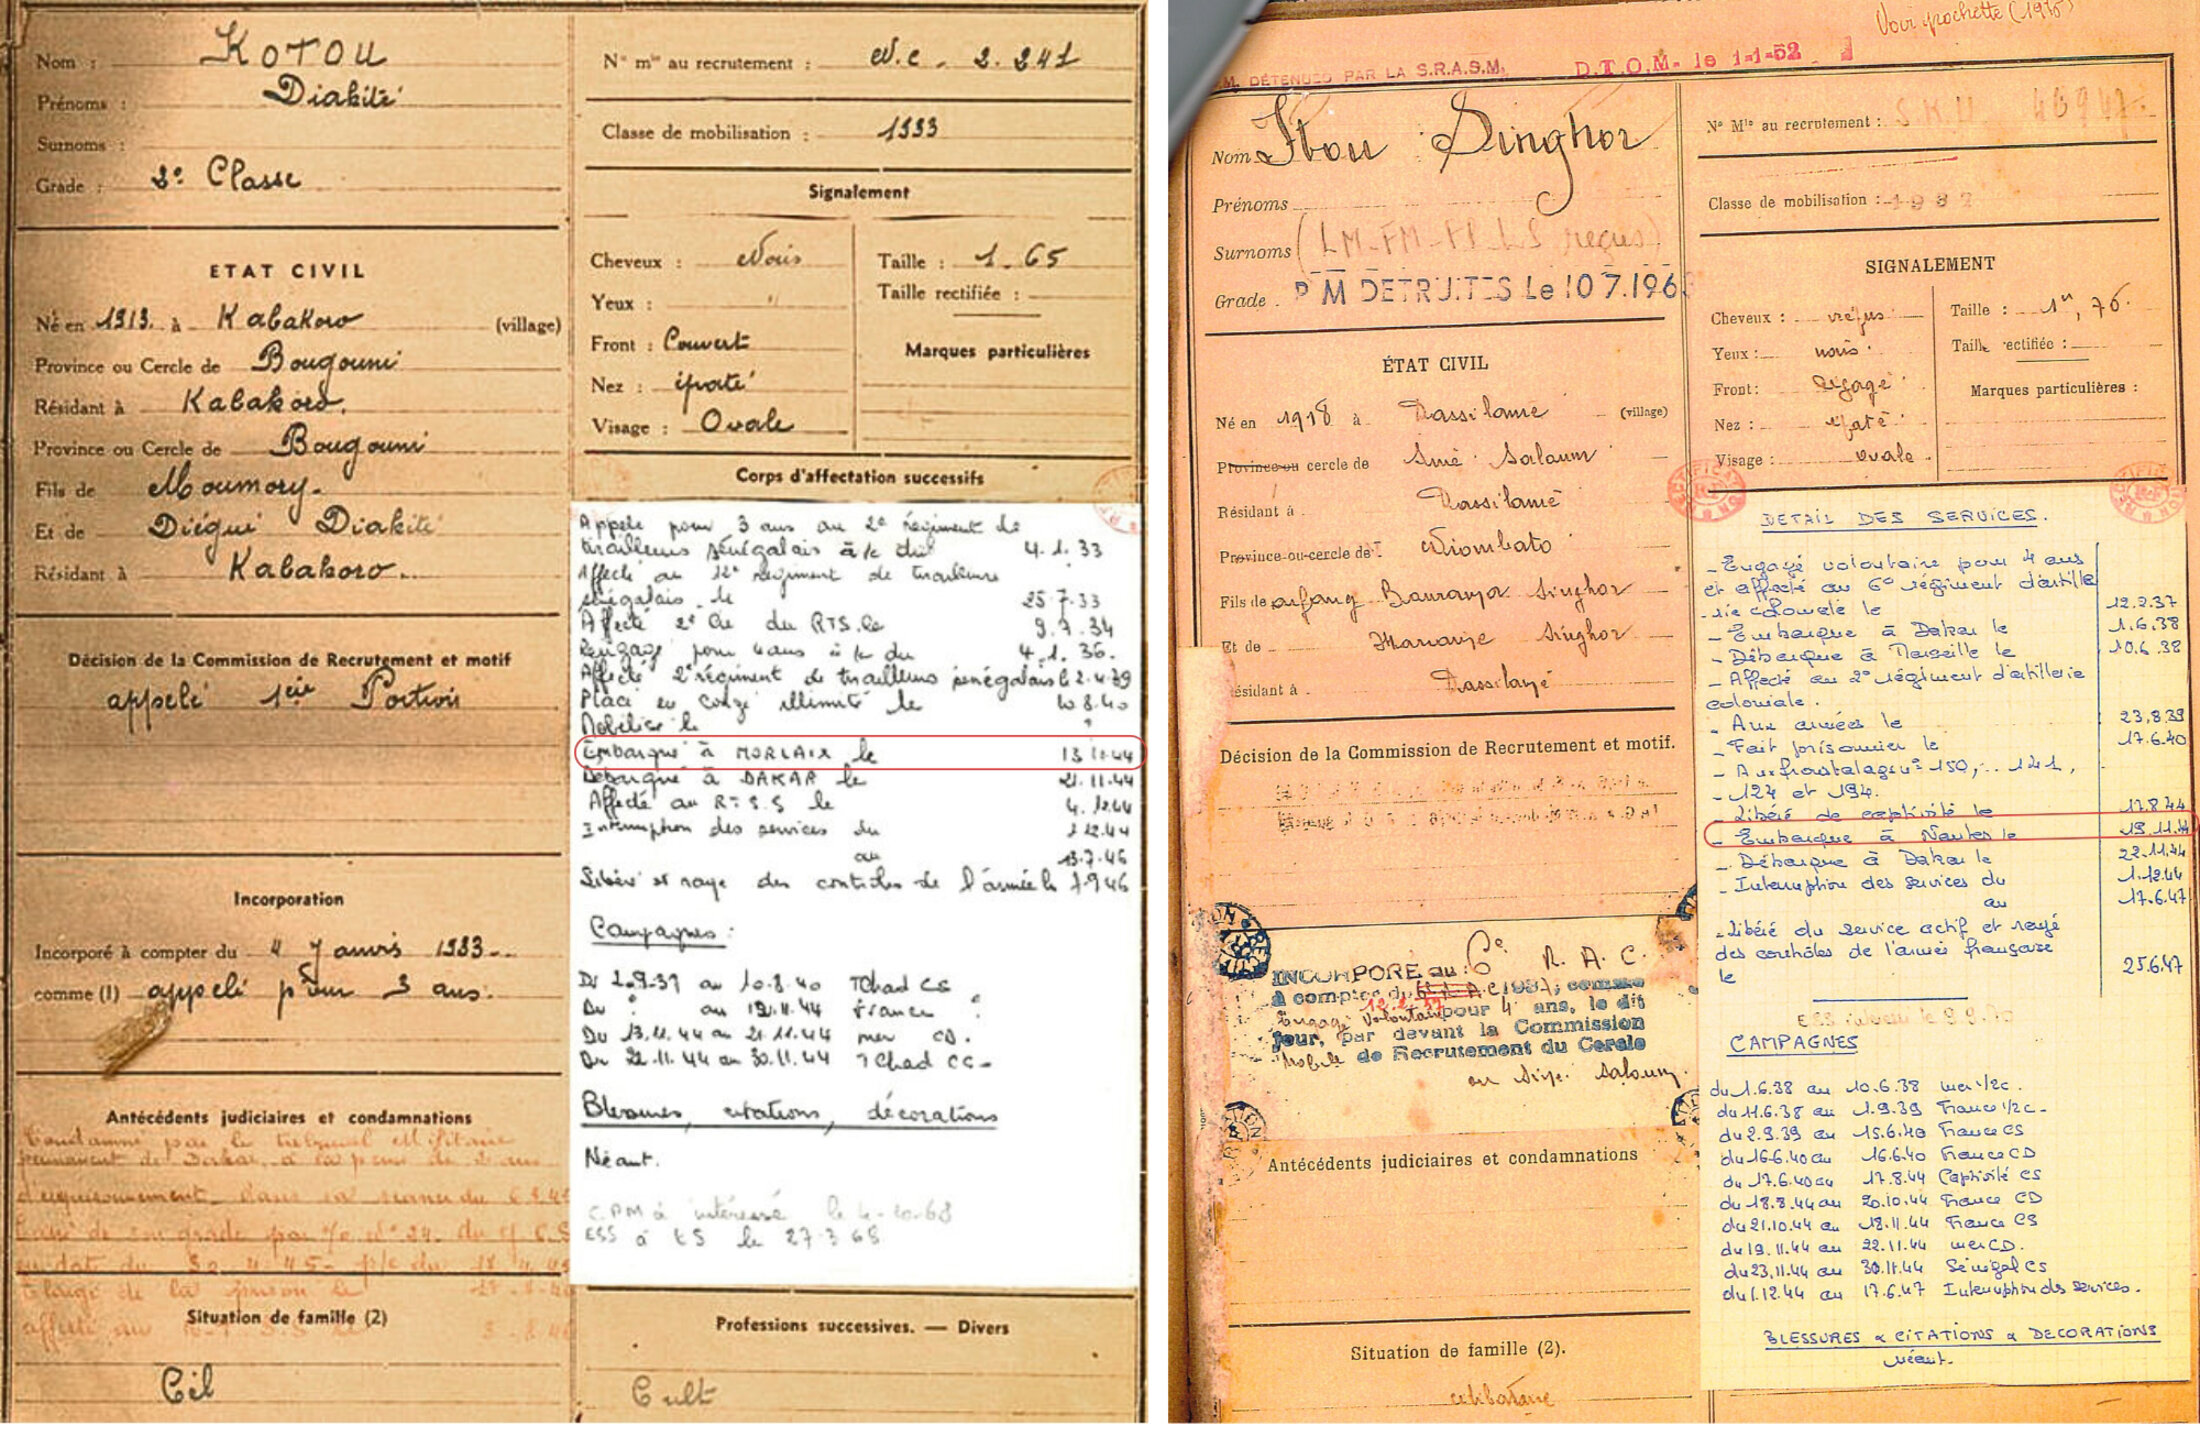 Nom : KOTOU
Prénoms : Diakité
Surnoms :
Grade : 2e Classe
ETAT CIVIL
Né en 1913. à Kabakoro (village)
Province ou Cercle de Bougouni
Résidant à Kabakoro.
Province ou Cercle de Bougouni
Fils de Moumory.
Et de Diégui Diakité
Résidant à Kabakoro.
Décision de la Commission de Recrutement et motif
appelé 1ère Portion
Incorporation
Incorporé à compter du 4 Janvis 1933
comme (1) appelé pour 3 ans.
Antécédents judiciaires et condamnations
Condamné par le tribunal Militaire
permanent de Dakar, à la peine de 2 ans
d'emprisonnement dans sa séance du
Cassé de son grade par
en date du
Elargi de la prison le
affecté au
Situation de famille (2)
Cél
N° mle au recrutement : N.C. 2.241
Classe de mobilisation : 1933
Signalement
Cheveux : Noirs
Yeux : "
Front : Couvert
Nez : épaté
Visage : Ovale
Taille : 1.65
Taille rectifiée :
Marques particulières
Corps d'affectation successifs
Appelé pour 3 ans au 2e Régiment de
tirailleurs sénégalais à/c du 4.1.33
Affecté au 12e régiment de tirailleurs
sénégalais le 25.7.33
Affecté 2e du RTS le 9.7.34
Rengagé pour 4 ans à/c du 4.1.36.
Affecté 2e régiment de tirailleurs sénégalais le 2.4.39
Placé en congé illimité le 10.8.40
Mobilisé le "
Embarqué à MORLAIX le 13.11.44
Débarqué à DAKAR le 21.11.44
Affecté au le 4.12.44
Interruption des services du 1.12.44
au 13.7.46
Libéré et rayé des contrôles de l'armée le 7.9.46
Campagnes :
Du 2.9.39 au 10.8.40 Tchad CS
Du " au 12.11.44 France "
Du 13.11.44 au 21.11.44 mer CD.
Du 22.11.44 au 30.11.44 Tchad CS-
Blessures, citations, décorations
Néant.
C.P.M à intéressé le 4-10-68
ESS à ES le 27-3-68
Professions successives. — Divers
Cult
Voir pochette (1975)
DÉTENUES PAR LA S.R.A.S.M. D.T.O.M. le 1-1-52
Nom Ibou Singhor
Prénoms
Surnoms (LM-FM- reçus)
Grade. P M DETRUITES Le 10 7.196
ÉTAT CIVIL
Né en 1918 à Dassilamé (village)
Province ou cercle de Siné Saloum
Résidant à Dassilamé
Province ou cercle de Niombato
Fils de arfang Bauranja Singhor
Et de Mariane Singhor
Résidant à Dassilamé
Décision de la Commission de Recrutement et motif.
INCORPORÉ au 6e R.A.C.
à compter du 12.2.37 1937, comme
Engagé Volontaire pour 4 ans, le dit
jour, par devant la Commission
Mobile de Recrutement du Cercle
du Siné Saloum.
Antécédents judiciaires et condamnations
Situation de famille (2).
célibataire
N° Mle au recrutement : S.K.U 46947.
Classe de mobilisation : 1937
SIGNALEMENT
Cheveux : crépus
Yeux : noirs
Front : dégagé
Nez : épaté
Visage : ovale
Taille : 1m,76.
Taille rectifiée :
Marques particulières :
DETAIL DES SERVICES.
- Engagé volontaire pour 4 ans
et affecté au 6e régiment d'artille
-rie coloniale le 12.2.37
- Embarque à Dakar le 1.6.38
- Débarque à Marseille le 10.6.38
- Affecté au 2e régiment d'artillerie
coloniale.
- Aux armées le 23.8.39
- Fait prisonnier le 17.6.40
- Aux frontstalags n° 150, .. 121,
- 124 et 194.
- Libéré de captivité le 17.8.44
- Embarque à Nantes le 19.11.44
- Débarque à Dakar le 22.11.44
- Interruption des services du 1.12.44
au 17.6.47
- Libéré du service actif et rayé
des contrôles de l'armée française
le 25.6.47
CAMPAGNES
du 1.6.38 au 10.6.38 mer 1/2c.
du 11.6.38 au 1.9.39 France 1/2c-
du 2.9.39 au 15.6.40 France CS
du 16.6.40 au 16.6.40 France CD
du 17.6.40 au 17.8.44 Captivité CS
du 18.8.44 au 20.10.44 France CD
du 21.10.44 au 18.11.44 France CS
du 19.11.44 au 22.11.44 mer CD.
du 23.11.44 au 30.11.44 Sénégal CS
du 1.12.44 au 17.6.47 Interruption des services.
BLESSURES & CITATIONS & DECORATIONS
néant.